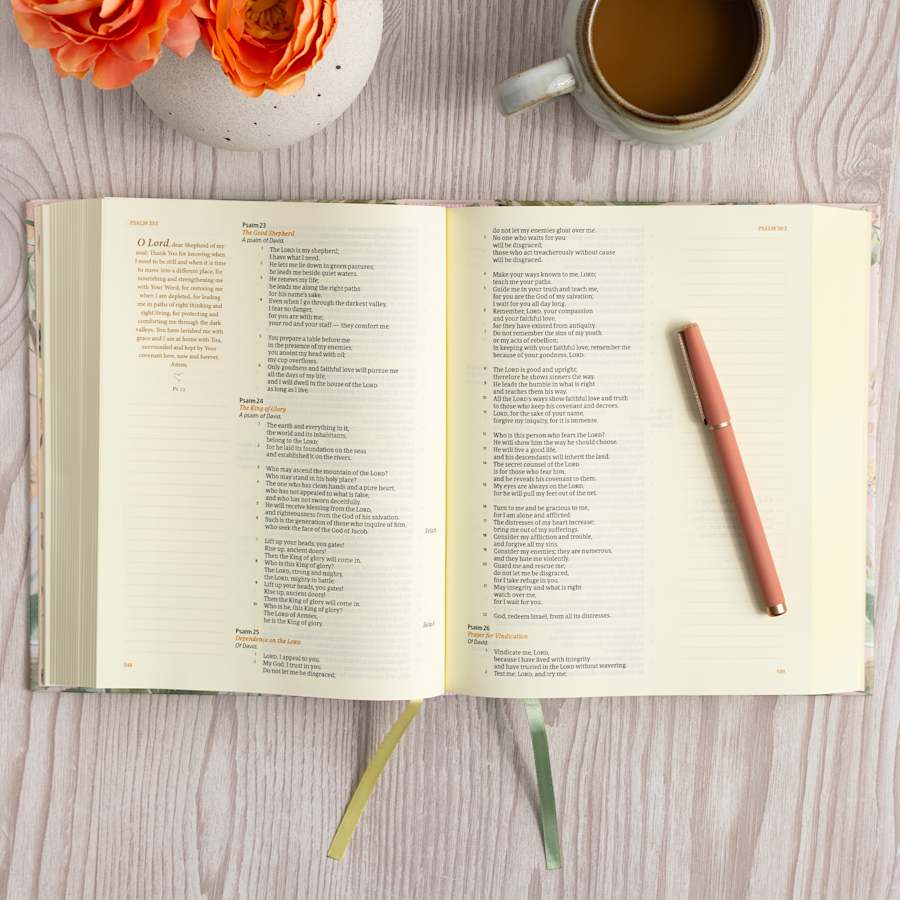 PSALM 23:1
O Lord, dear Shepherd of my
soul: Thank You for knowing when
I need to be still and when it is time
to move into a different place, for
nourishing and strengthening me
with Your Word, for restoring me
when I am depleted, for leading
me in paths of right thinking and
right living, for protecting and
comforting me through the dark
valleys. You have lavished me with
grace and I am at home with You,
surrounded and kept by Your
covenant love, now and forever,
Amen.
Ps 23
Psalm 23
The Good Shepherd
A psalm of David.
1 The LORD is my shepherd;
I have what I need.
2 He lets me lie down in green pastures;
he leads me beside quiet waters.
3 He renews my life;
he leads me along the right paths
for his name's sake.
4 Even when I go through the darkest valley,
I fear no danger,
for you are with me;
your rod and your staff — they comfort me.
5 You prepare a table before me
in the presence of my enemies;
you anoint my head with oil;
my cup overflows.
6 Only goodness and faithful love will pursue me
all the days of my life,
and I will dwell in the house of the LORD
as long as I live.
Psalm 24
The King of Glory
A psalm of David.
1 The earth and everything in it,
the world and its inhabitants,
belong to the LORD;
2 for he laid its foundation on the seas
and established it on the rivers.
3 Who may ascend the mountain of the LORD?
Who may stand in his holy place?
4 The one who has clean hands and a pure heart,
who has not appealed to what is false,
and who has not sworn deceitfully.
5 He will receive blessing from the LORD,
and righteousness from the God of his salvation.
6 Such is the generation of those who inquire of him,
who seek the face of the God of Jacob. Selah
7 Lift up your heads, you gates!
Rise up, ancient doors!
Then the King of glory will come in.
8 Who is this King of glory?
The LORD, strong and mighty,
the LORD, mighty in battle.
9 Lift up your heads, you gates!
Rise up, ancient doors!
Then the King of glory will come in.
10 Who is he, this King of glory?
The LORD of Armies,
he is the King of glory. Selah
Psalm 25
Dependence on the LORD
Of David.
1 LORD, I appeal to you.
2 My God, I trust in you.
Do not let me be disgraced;
do not let my enemies gloat over me.
3 No one who waits for you
will be disgraced;
those who act treacherously without cause
will be disgraced.
4 Make your ways known to me, LORD;
teach me your paths.
5 Guide me in your truth and teach me,
for you are the God of my salvation;
I wait for you all day long.
6 Remember, LORD, your compassion
and your faithful love,
for they have existed from antiquity.
7 Do not remember the sins of my youth
or my acts of rebellion;
in keeping with your faithful love, remember me
because of your goodness, LORD.
8 The LORD is good and upright;
therefore he shows sinners the way.
9 He leads the humble in what is right
and teaches them his way.
10 All the LORD's ways show faithful love and truth
to those who keep his covenant and decrees.
11 LORD, for the sake of your name,
forgive my iniquity, for it is immense.
12 Who is this person who fears the LORD?
He will show him the way he should choose.
13 He will live a good life,
and his descendants will inherit the land.
14 The secret counsel of the LORD
is for those who fear him,
and he reveals his covenant to them.
15 My eyes are always on the LORD,
for he will pull my feet out of the net.
16 Turn to me and be gracious to me,
for I am alone and afflicted.
17 The distresses of my heart increase;
bring me out of my sufferings.
18 Consider my affliction and trouble,
and forgive all my sins.
19 Consider my enemies; they are numerous,
and they hate me violently.
20 Guard me and rescue me;
do not let me be disgraced,
for I take refuge in you.
21 May integrity and what is right
watch over me,
for I wait for you.
22 God, redeem Israel, from all its distresses.
Psalm 26
Prayer for Vindication
Of David.
1 Vindicate me, LORD,
because I have lived with integrity
and have trusted in the LORD without wavering.
2 Test me, LORD, and try me;